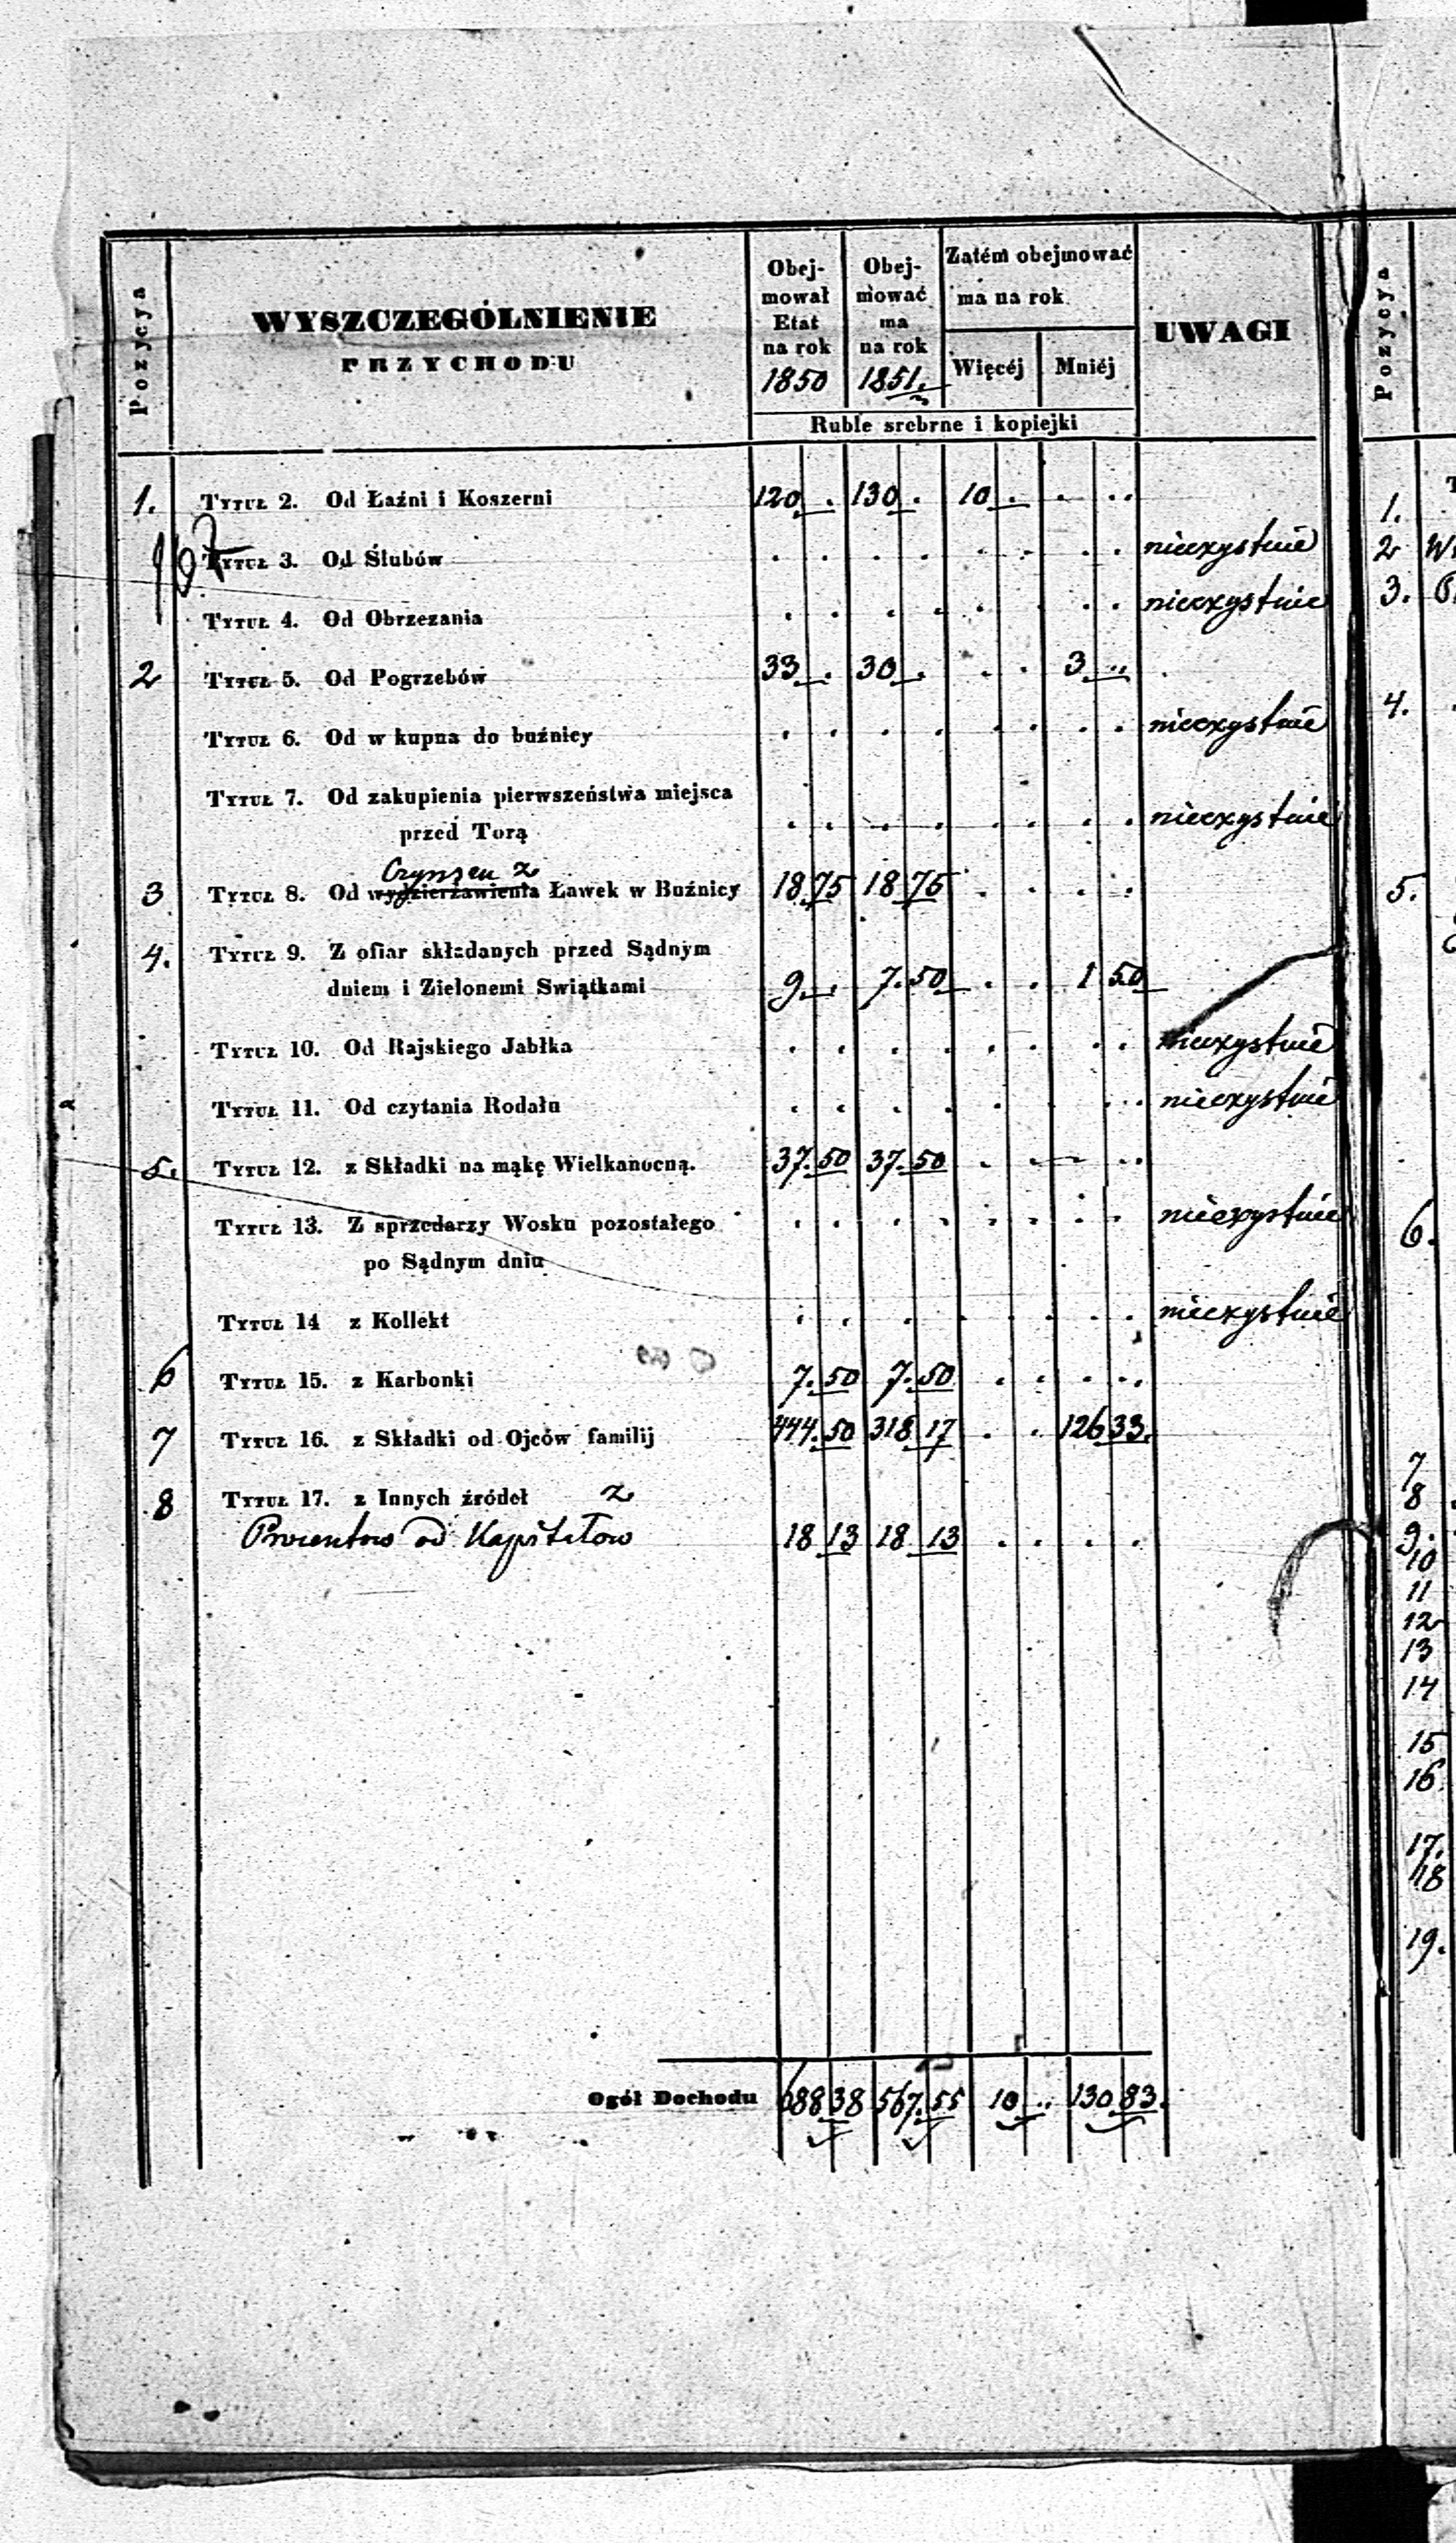 Pozycya
WYSZCZEGÓLNIENIE
PRZYCHODU
Obej-
mował
Etat
na rok
1850
Obej-
mować
ma
na rok
1851.
Zatém obejmować
ma na rok
Więcéj Mniéj
Ruble srebrne i kopiejki
UWAGI
1. Tytuł 2. Od Łaźni i Koszerni 120 . 130 . 10 . . ..
Tytuł 3. Od Ślubów . . . . . . . . nieexystuie
Tytuł 4. Od Obrzezania . . . . . . . . nieexystuie
2 Tytuł 5. Od Pogrzebów 33 . 30 . . . 3 ..
Tytuł 6. Od w kupna do buźnicy . . . . . . . . nieexystuie
Tytuł 7. Od zakupienia pierwszeństwa miejsca
przed Torą . . . . . . . . nieexystuie
Czynszu z
3 Tytuł 8. Od wydzierżawienia Ławek w Buźnicy 18.75 18 75 . . . .
4. Tytuł 9. Z ofiar składanych przed Sądnym
dniem i Zielonemi Swiątkami 9 . 7.50 . . 1 50
Tytuł 10. Od Rajskiego Jabłka . . . . . . . . nieexystuie
Tytuł 11. Od czytania Rodału . . . . . . . . nieexystuie
5. Tytuł 12. z Składki na mąkę Wielkanocną. 37.50 37.50 . . . .
Tytuł 13. Z sprzedarzy Wosku pozostałego . . . . . . . . nieexystuie
po Sądnym dniu
Tytuł 14 z Kollekt . . . . . . . nieexystuie
6 Tytuł 15. z Karbonki 7.50 7.50 . . . .
7 Tytuł 16. z Składki od Ojców familij 444.50 318 17 . . 126 33.
8 Tytuł 17. z Innych źródeł z
Procentow od Kapitałow 18 13 18 13 . . . .
Ogół Dochodu 688 38 567.55 10 .. 130 83.
Pozycya
1.
2
3.
4.
5.
6.
7
8
9.
10
11
12
13
14
15
16
17.
18
19.